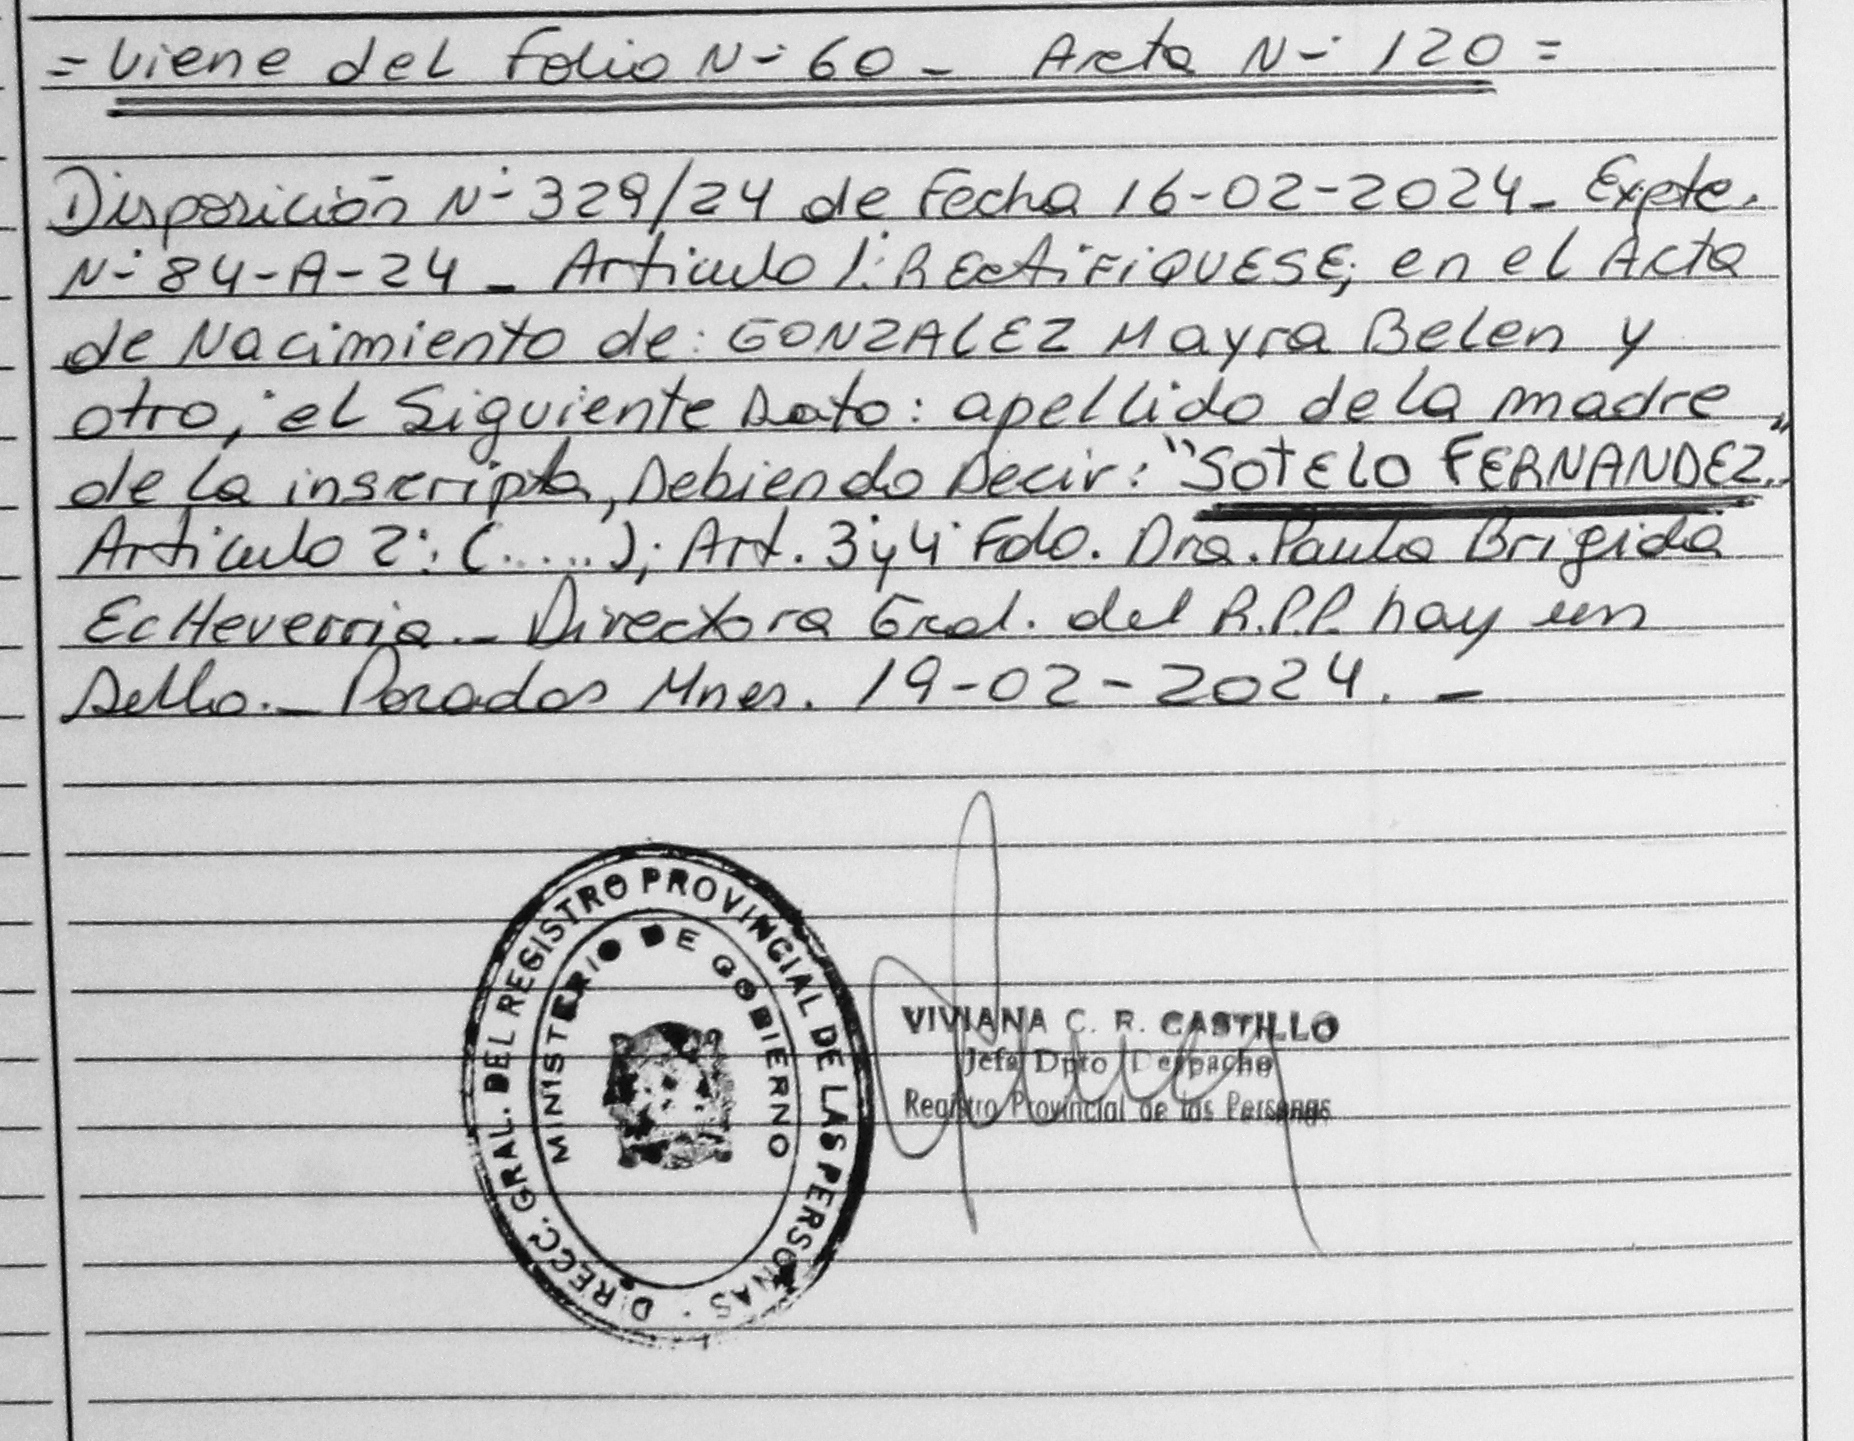 = Viene del Folio N- 60 - Acta N- 120 =
Disposición N- 329/24 de Fecha 16-02-2024_ Expte.
N- 84-A-24 _ Articulo 1: RECtiFiQUESE; en el Acta
de Nacimiento de: GONZALEZ Mayra Belen y
otro; el Siguiente Dato: apellido de la madre
de la inscripta, Debiendo Decir: "SOtELO FERNANDEZ."
Articulo 2: (.....); Art. 3 y 4 Fdo. Dra. Paula Brigida
EcHeverria._ Directora Gral. del R.P.P. hay un
Sello._ Posadas Mnes. 19-02-2024. _
DIRECC. GRAL. DEL REGISTRO PROVINCIAL DE LAS PERSONAS ·
MINISTERIO DE GOBIERNO
VIVIANA C. R. CASTILLO
Jefa Dpto Despacho
Registro Provincial de las Personas